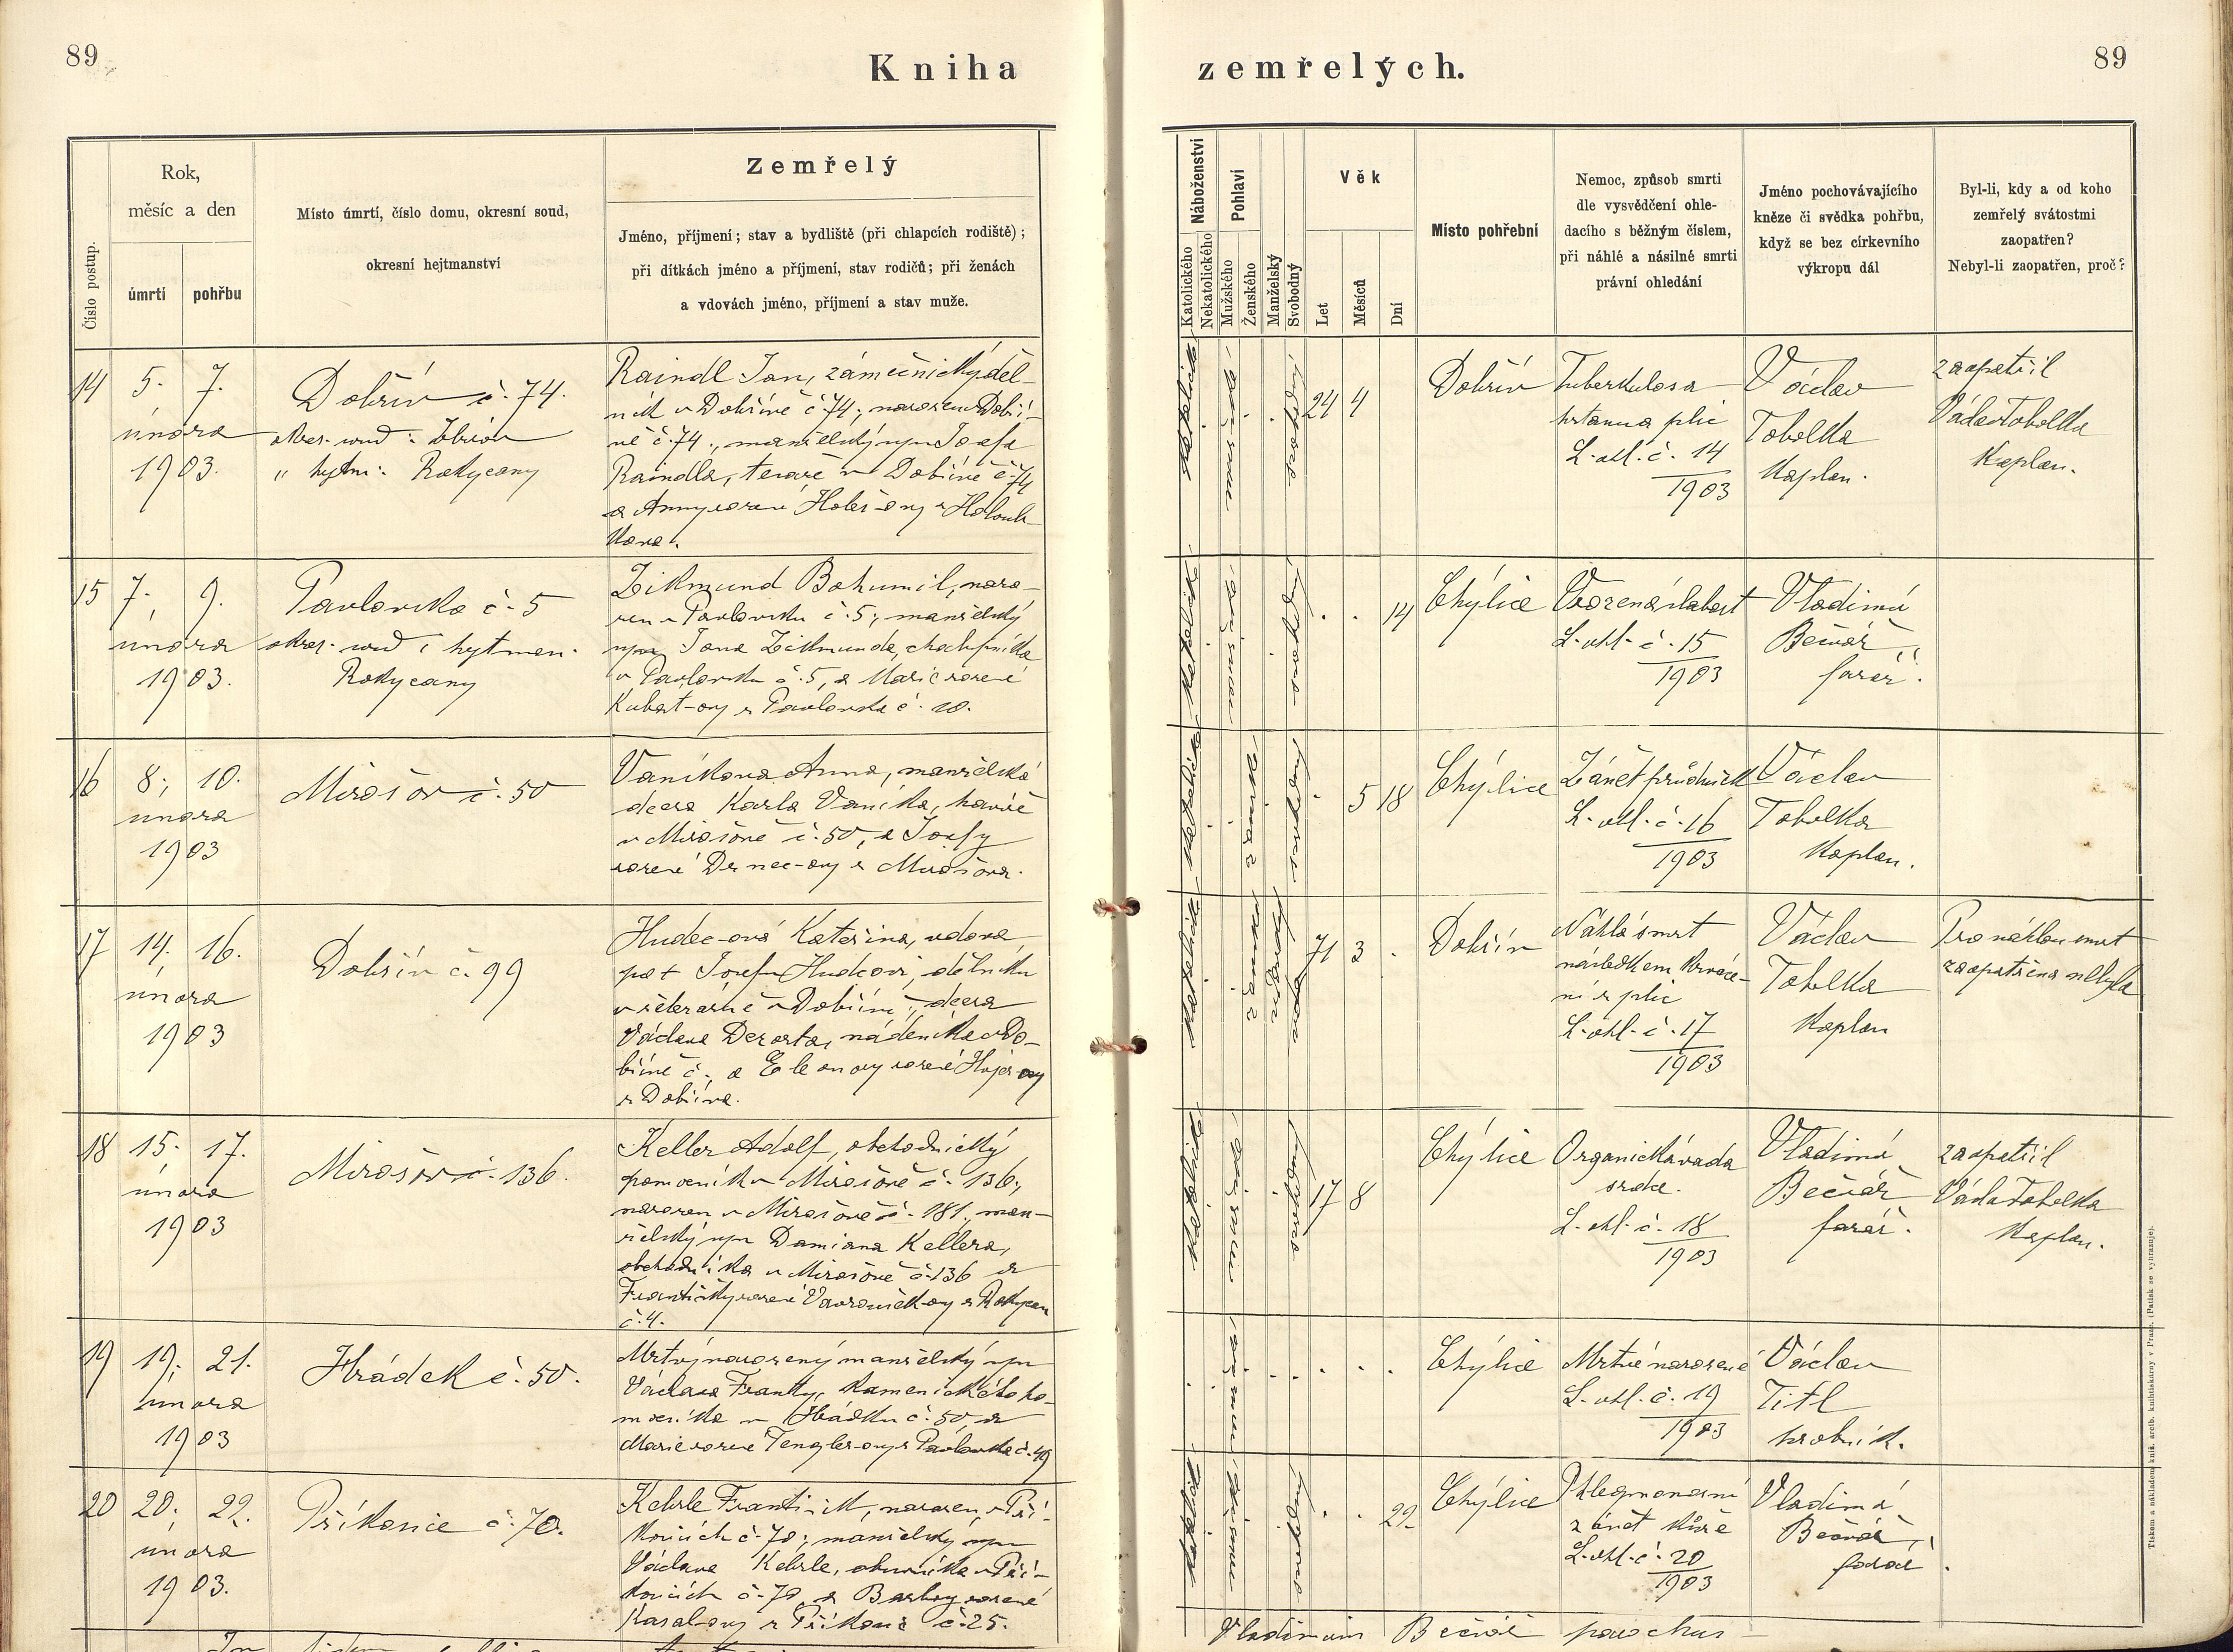 89
Kniha zemřelých.
89
Číslo postup.
Rok,
měsíc a den
úmrtí
pohřbu
Místo úmrtí, číslo domu, okresní soud,
okresní hejtmanství
Zemřelý
Jméno, příjmení; stav a bydliště (při chlapcích rodiště);
při dítkách jméno a příjmení, stav rodičů; při ženách
a vdovách jméno, příjmení a stav muže.
Náboženství
Katolického
Nekatolického
Pohlaví
Mužského
Ženského
Manželský
Svobodný
Věk
Let
Měsíců
Dní
Místo pohřební
Nemoc, způsob smrti
dle vysvědčení ohle-
dacího s běžným číslem,
při náhlé a násilné smrti
právní ohledání
Jméno pochovávajícího
kněze či svědka pohřbu,
když se bez církevního
výkropu dál
Byl-li, kdy a od koho
zemřelý svátostmi
zaopatřen?
Nebyl-li zaopatřen, proč?
14
5. 7.
února
1903.
Dobřív č. 74.
okres. soud: Zbirov
" hejtm: Rokycany
Raindl Jan, zámečnický děl-
ník v Dobřívě č 74; narozen v Dobří-
vě č. 74., manželský syn Josefa
Raindla, tesaře v Dobřívě č 74
a Anny rozené Holeš-ovy z Holoub-
kova.
katolické
mužské
svobodný
24 4
Dobřív
Tuberkulosa
hrtanu a plic
L. ohl. č. 14
1903
Václav
Tobolka
kaplan.
zaopatřil
Václav Tobolka
kaplan.
15
7. 9.
února
1903.
Pavlovsko č. 5
okres. soud i hejtman.
Rokycany
Zikmund Bohumil, naro-
zen v Pavlovsku č. 5; manželský
syn Jana Zikmunda, chalupníka
v Pavlovsku č. 5, a Marie rozené
Kubát-ovy z Pavlovska č. 10.
katolické
mužské
svobodný
. . 14
Chýlice
Vrozená slabost
L. ohl. č. 15
1903
Vladimír
Bečvář,
farář.
16
8. 10.
února
1903
Mirošov č. 50
Vaníkova Anna, manželská
dcera Karla Vaníka, havíře
v Mirošově č. 50, a Josefy
rozené Drnec-ovy z Mirošova.
katolické
ženské
svobodná
. 5 18
Chýlice
Zánět průdušek
L. ohl. č. 16
1903
Václav
Tobolka
kaplan.
17
14. 16.
února
1903
Dobřív č. 99
Hudec-ová Kateřina, vdova
po + Josefu Hudcovi, dělníku
v železárně v Dobřívě, dcera
Václava Dezorta, nádeníka v Do-
břívě č. , a Eleonory rozené Hájer-ovy
z Dobříva.
katolické
ženské
vdova
71 3 .
Dobřív
Náhlá smrt
následkem krváce-
ní z plic
L. ohl. č. 17
1903
Václav
Tobolka
kaplan
Pro náhlou smrt
zaopatřena nebyla
18
15. 17.
února
1903
Mirošov č. 136.
Keller Adolf, obchodnický
pomocník v Mirošově č. 136;
narozen v Mirošově č. 181., man-
želský syn Damiana Kellera,
obchodníka v Mirošově č. 136 a
Františky rozené Vavroušek-ovy z Rokycan
č. 4.
katolické
mužské
svobodný
17 8
Chýlice
Organická vada
srdce.
L. ohl. č. 18
1903
Vladimír
Bečvář
farář.
zaopatřil
Václav Tobolka
kaplan.
19
19. 21.
února
1903
Hrádek č. 50.
Mrtvý narozený manželský syn
Václava Franty, kamenického po-
mocníka v Hrádku č. 50, a
Marie rozené Tengler-ovy z Pavlovska č. 49
mužské
Chýlice
Mrtvě narozené
L. ohl. č. 19
1903
Václav
Titl
hrobník.
20
20. 22.
února
1903.
Příkosice č. 70.
Kehrle František, narozen v Pří-
kosicích č. 70; manželský syn
Václava Kehrle, obuvníka v Pří-
kosicích č. 70, a Barbory rozené
Kasal-ovy z Příkosic č. 25.
katolické
mužské
svobodný
. . 22.
Chýlice
Phlegmonosní
zánět kůže
L. ohl. č. 20
1903
Vladimír
Bečvář,
farář.
Vladimirus Bečvář parochus
Tiskem a nákladem kníž. arcib. knihtiskárny v Praze. (Patisk se vyhrazuje).